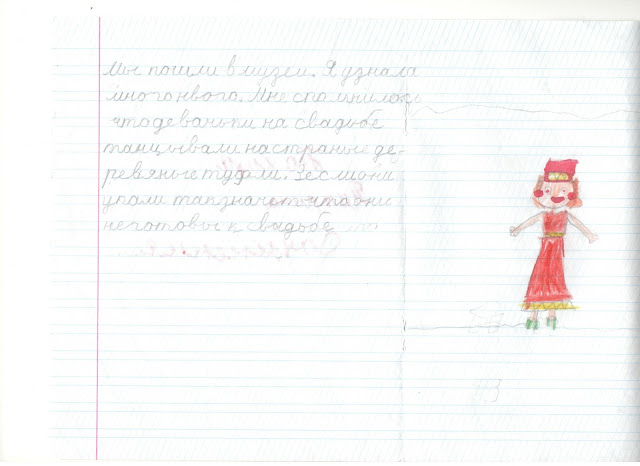 Мы пошли в музеи. Я узнала
много нвого. Мне спомнилось
что деваньки на свадьбе
танцывали на страные де-
ревяные туфли. Если они
упали та пзначет что они
не готовы к свыдьбе